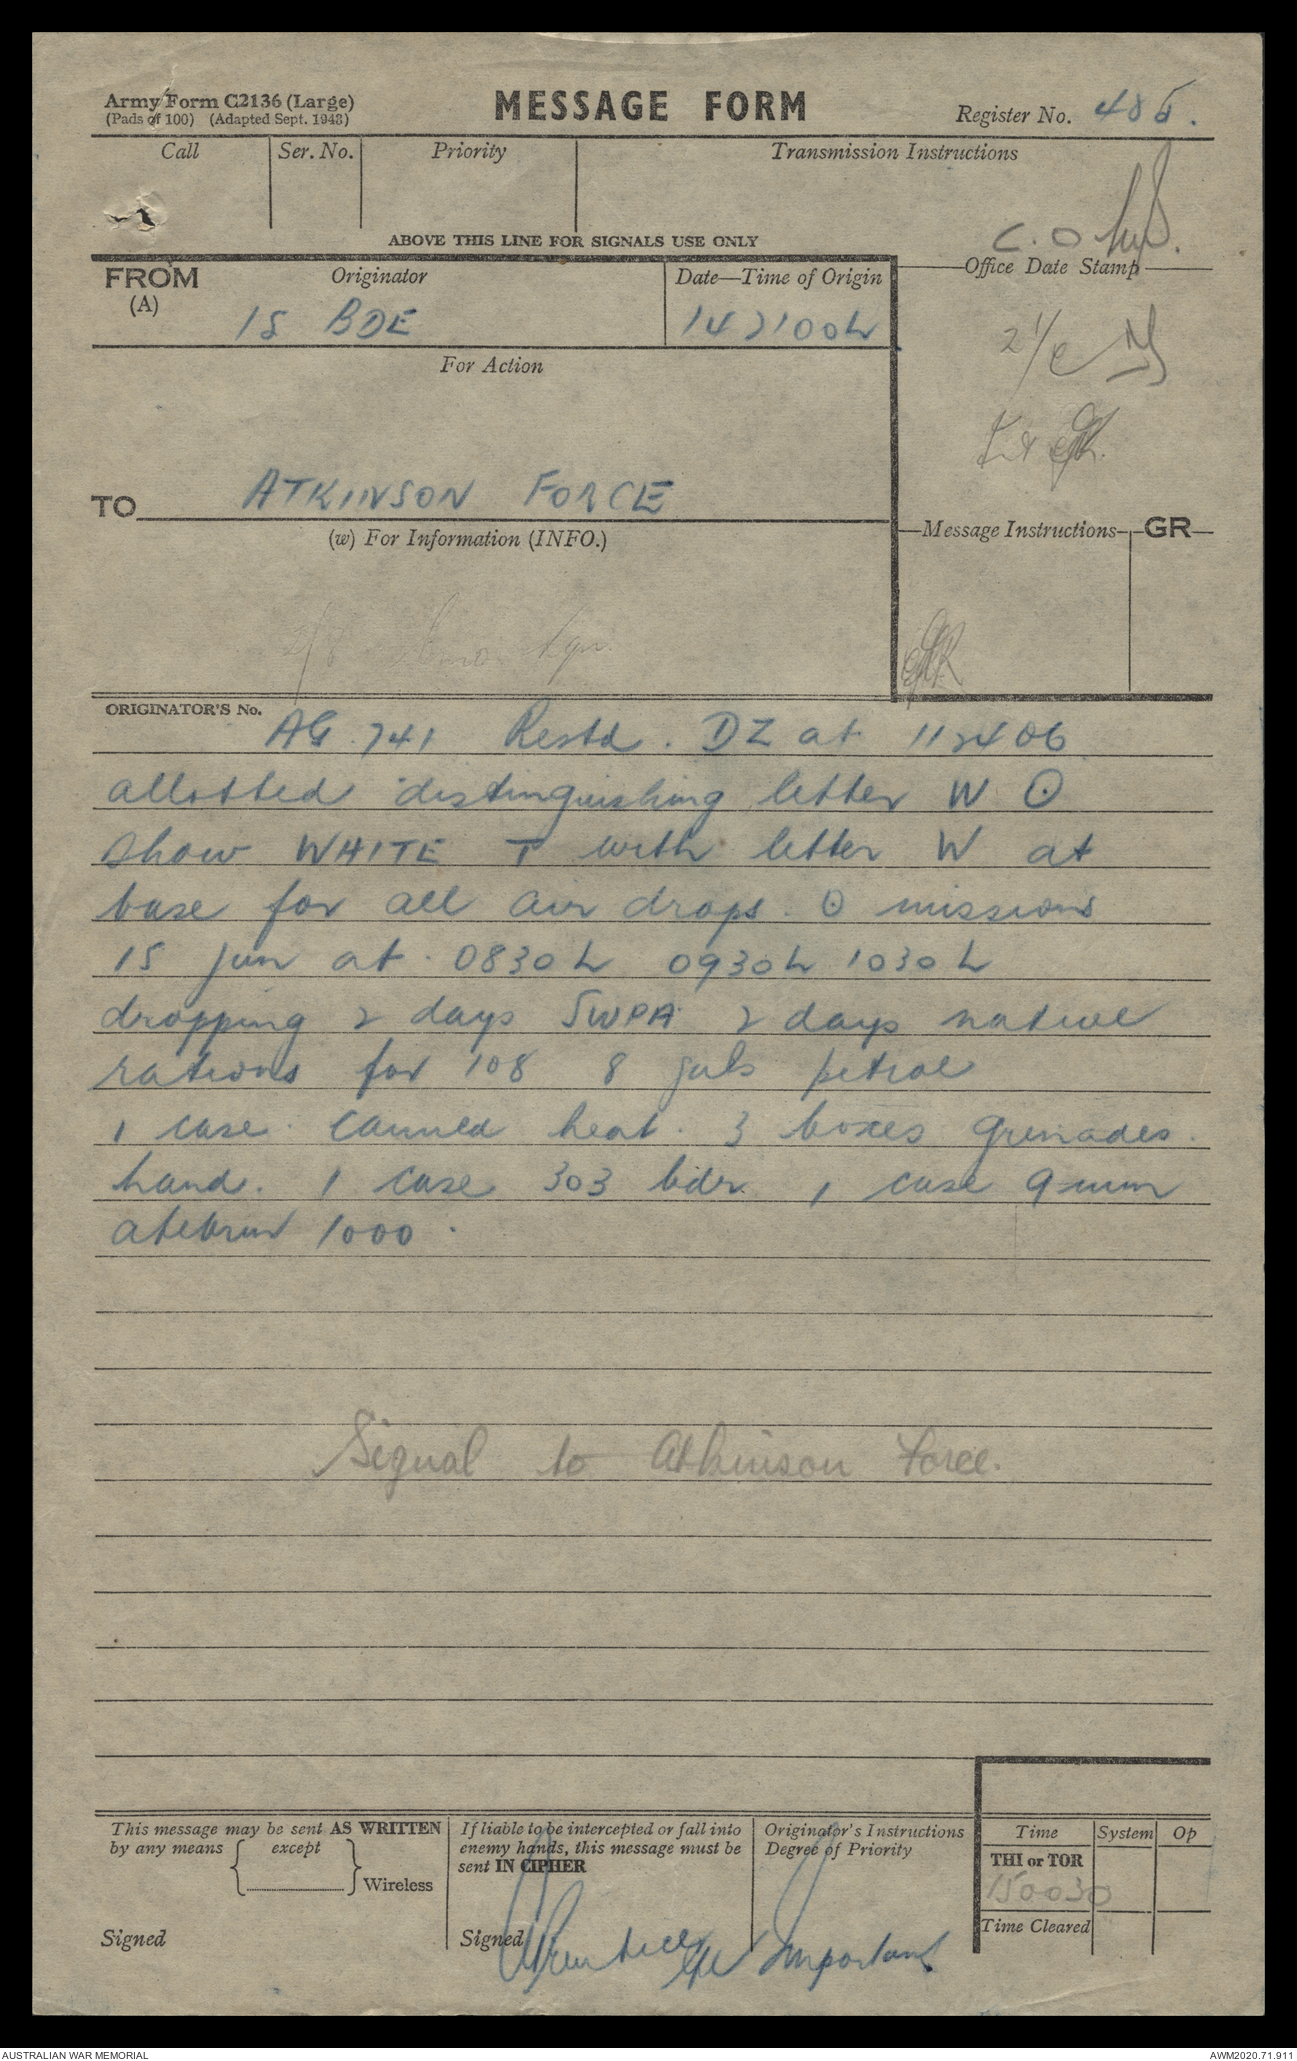 Army Form C2136 (Large)
(Pads of 100) (Adapted Sept. 1943)
MESSAGE FORM
Register No. 485.
Call
Ser. No.
Priority
Transmission Instructions
ABOVE THIS LINE FOR SIGNALS USE ONLY
C.O
FROM
(A)
Originator
15 BDE
Date—Time of Origin
142100h
Office Date Stamp
2 I/C
For Action
TO ATKINSON FORCE
(w) For Information (INFO.)
Message Instructions
GR
2/8
ORIGINATOR'S No.
AG 741 Restd. DZ at 112406
allotted distinguishing letter W ⊙
show WHITE T with letter W at
base for all air drops. ⊙ missions
15 Jun at 0830h 0930h 1030h
dropping 2 days SWPA 2 days native
rations for 108 8 gals petrol
1 case canned heat. 3 boxes grenades.
hand. 1 case 303 bdr 1 case 9mm
atebrin 1000.
Signal to Atkinson Force.
This message may be sent AS WRITTEN
by any means { except } Wireless
Signed
If liable to be intercepted or fall into
enemy hands, this message must be
sent IN CIPHER
Signed
Originator's Instructions
Degree of Priority
Important
Time
System
Op
THI or TOR
150030
Time Cleared
AUSTRALIAN WAR MEMORIAL
AWM2020.71.911